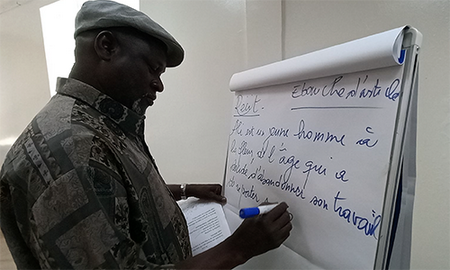 Ebauche d'article
Récit.
un jeune homme à
la fleur de l'âge qui a
décidé d'abandonner son travail